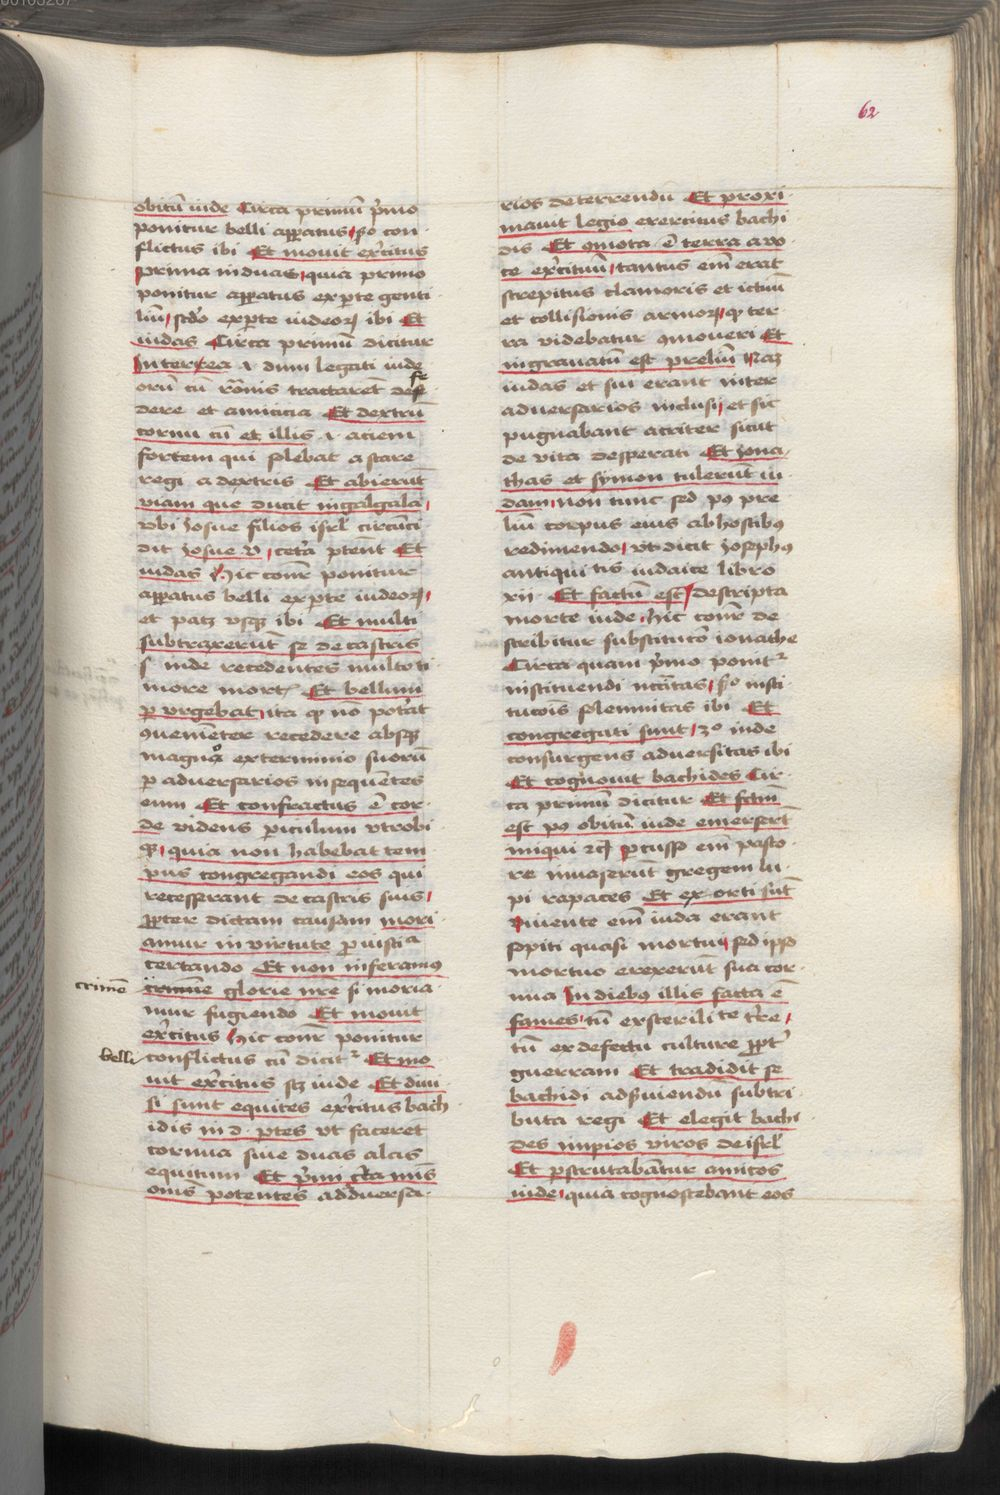 62
obitū iude Circa primū pͥmo
ponitur belli apparatus, sͦo con
flictus ibi Et mouit exͥcitus
prima in duas, quia primo
ponitur apparatus ex parte genti
liū, scdͦo ex parte iudeoꝝ ibi Et
iudas Circa primū dicitur
Interea .i. dum legati iude
orū cū Rōnis tractarēt de fe
dere et amicicia Et dextrū
cornu cū et illis .i. aciem
fortem qui solebat astare
regi a dextris Et abierūt
viam que ducit in galgala,
vbi Josue filios isrl' circūci
dit Josue v, ceta ptent Et
iudas Hic con̄r ponitur
apparatus belli ex parte iudeoꝝ,
et patꝫ vsqꝫ ibi Et multi
subtraxerūt se de castris
s inde recedentes multo ti
more mort Et bellum
p vrgebat, ita qꝫ nō potāt
ꝯueniēter recedere absqꝫ
magno exterminio suorū
p aduersarios insequētes
eum Et confractus ē cor
de videns piculum vtrobi
qꝫ, quia non habebat tem
pus congregandi eos qui
recesserant de castris suis,
ppter dictam causam mori
amur in virtute p iusticia
certando Et non inferamꝰ
crimē crimine glorie nr̄e si moria
mur fugiendo Et mouit
exͥcitus Hic con̄r ponitur
belli conflictus cū dicit Et mo
uit exͥcitus sꝫ iude Et diui
si sunt equites exͥcitus bach
idis in d ptes vt faceret
cornua siue duas alas
equitum Et pͥmi cͥta mis
onis potentes ad duersa
rios deterrendū Et proxi
mauit legio exercitus bachi
dis Et ꝯmota ē terra a vo
ce exͥcituū, tantus em̄ erat
strepitus clamoris et ictuū
et collisionis armoꝝ, qꝫ ter
ra videbatur ꝯmoueri Et
ingrauatū est preliū Naꝫ
iudas et sui erant inter
aduersarios inclusi, et sic
pugnabant acriter sicut
de vita desperati Et Jona
thas et symon tulerūt iu
dam, non tunc sed pꝰ pre
liū corpus eius ab hostibꝰ
redimendo, vt dicit Josephꝰ
antiqui tis iudaice libro
xii. Et factū est, descripta
morte iude, hic con̄r de
scribitur substitutō ionathe
Circa quam pͥmo ponit
instituendi nc̄itas, sͦo insti
tucōis solemnitas ibi Et
congregati sunt, 3ͦo inde
consurgens aduersitas ibi
Et cognouit bachides Cir
ca primū dicitur Et fctm̄
est pꝰ obitū iude emerserūt
iniqui ꝛc̄ pcusso em̄ pasto
re inuaserūt gregem lu
pi rapaces Et ex orti sūt
viuente em̄ iuda erant
sopiti quasi mortui, sed ipso
mortuo erexerūt sua cor
nua In diebꝰ illis facta ē
fames, tū ex sterili te tr̄e,
tū ex defectu culture ppt
guerram Et tradidit se
bachidi ad ꝑuiendū subtri
buta regi Et elegit bachi
des impios viros de isrl'
Et pscrutabātur amicos
iude, quia cognoscebant eos